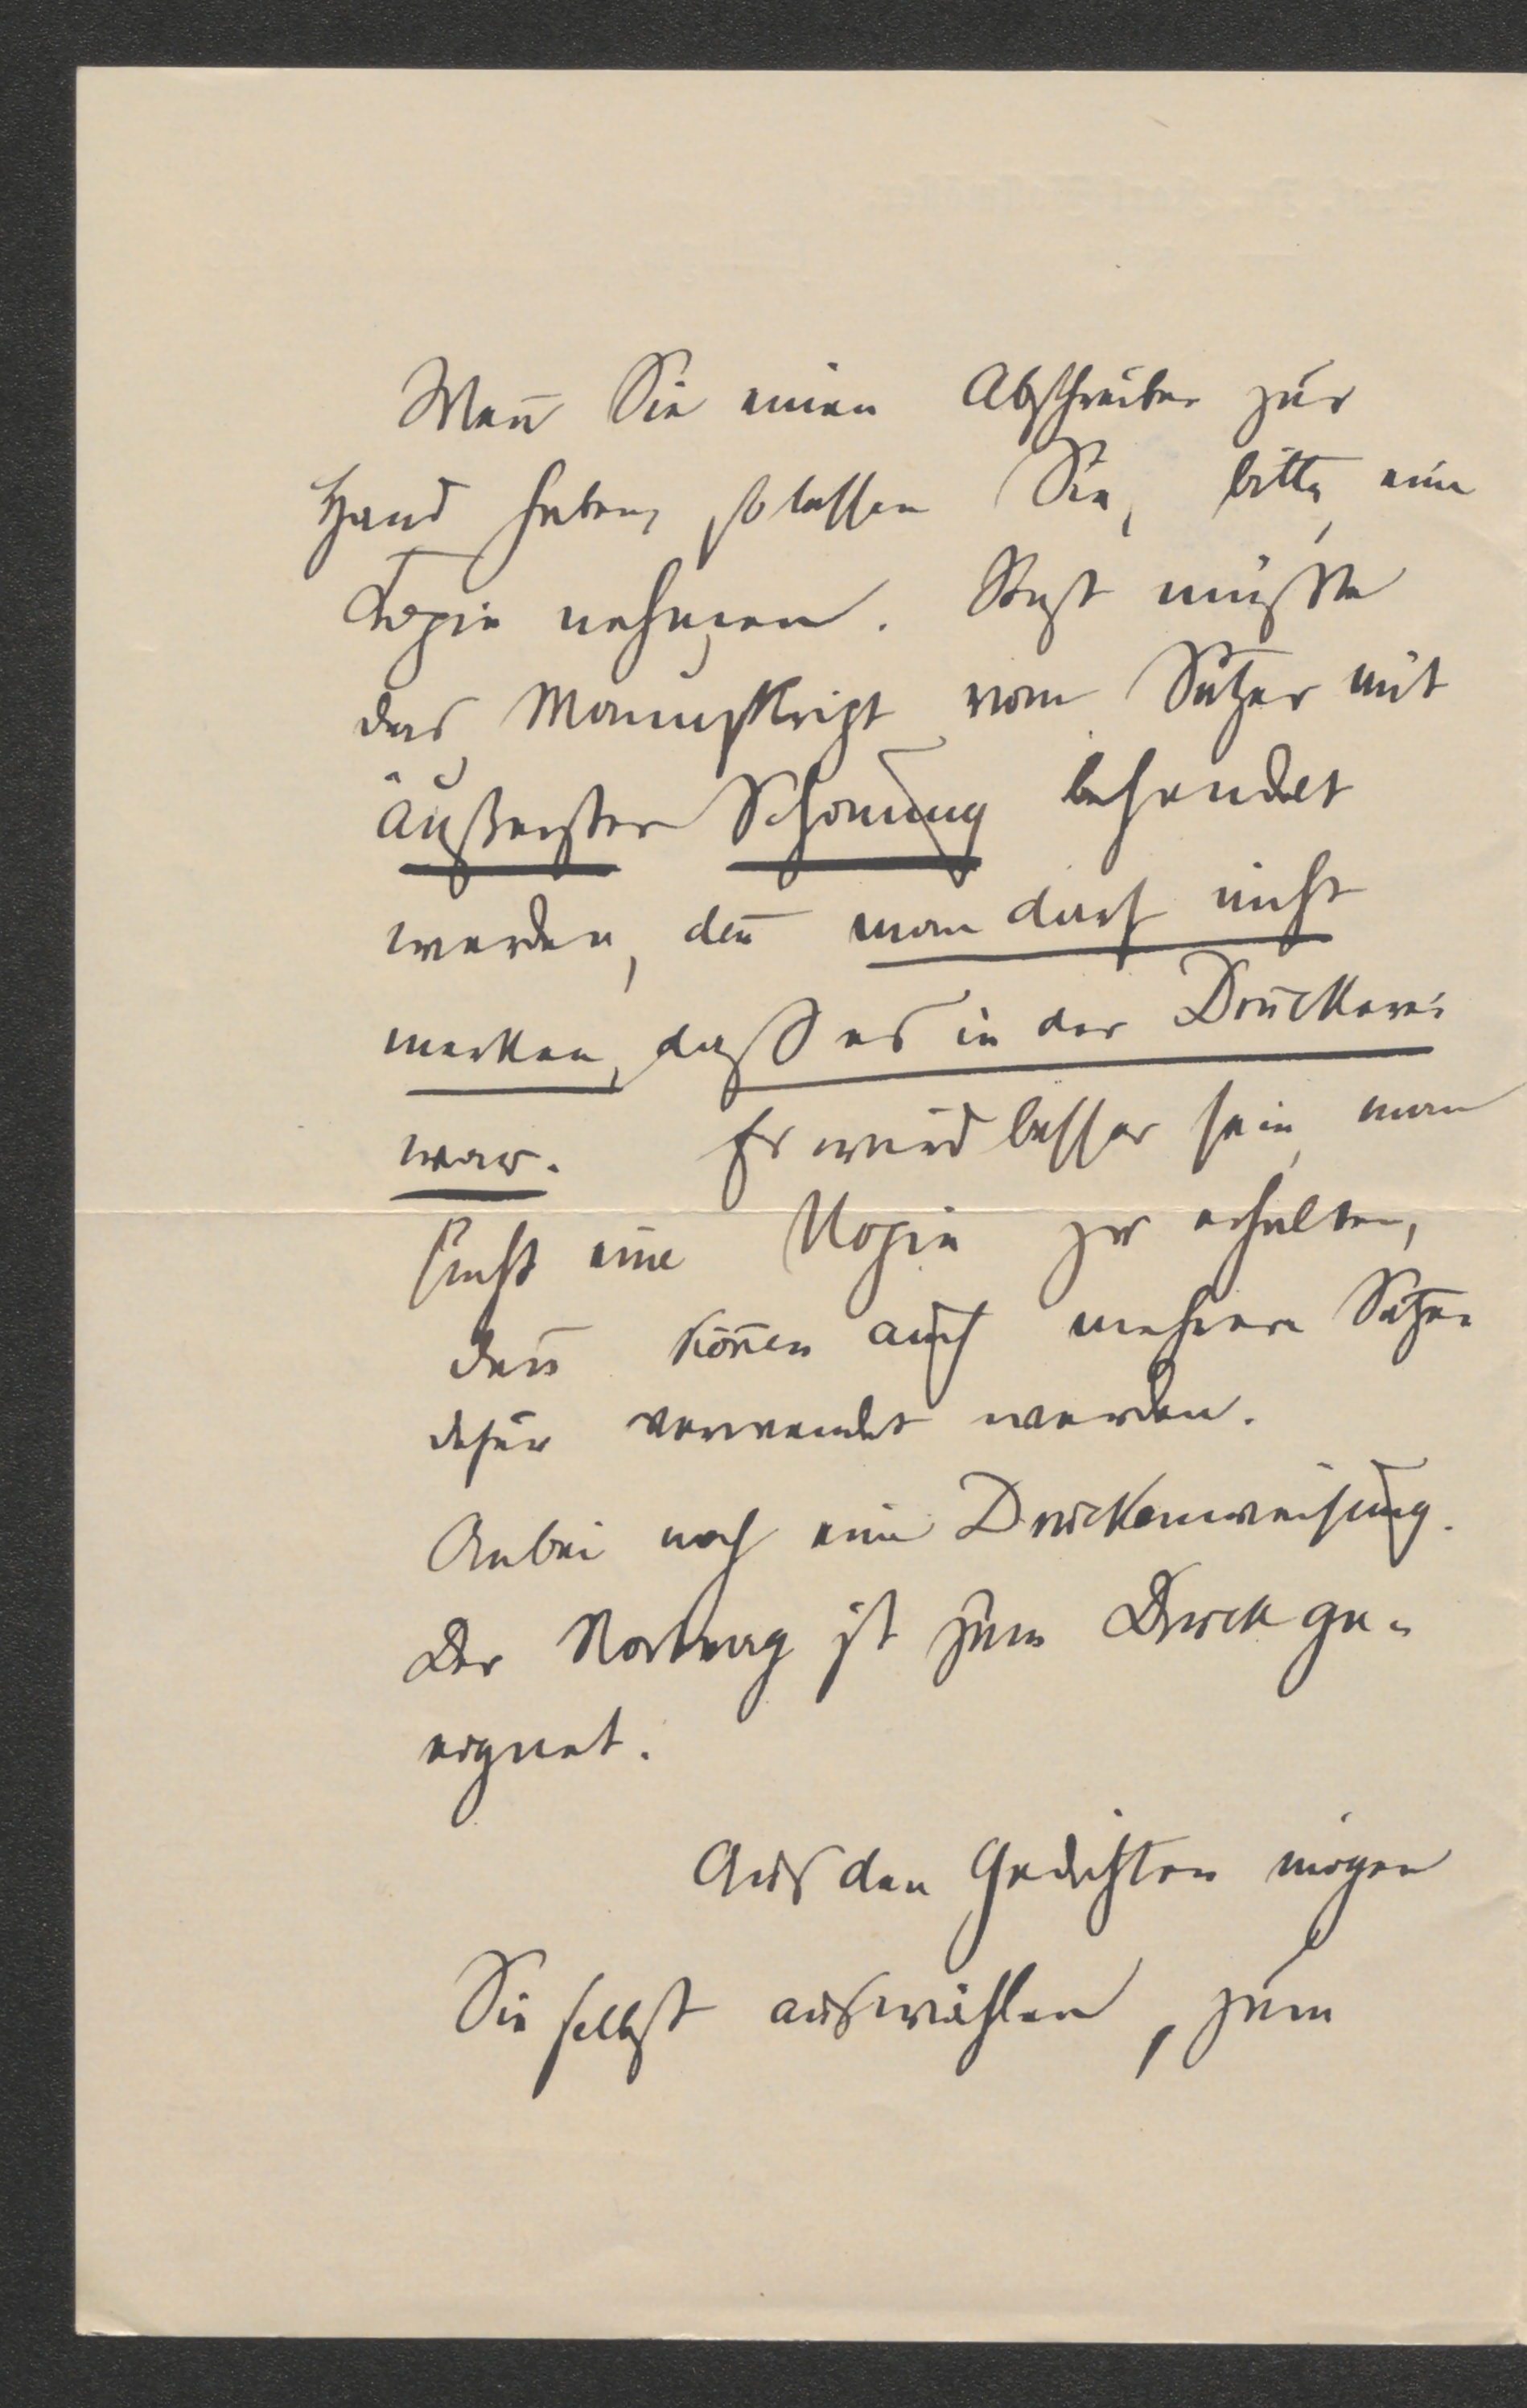 Wen̄ Sie einen Abschreiber zur
Hand haben, so lassen Sie, bitte, eine
Copie nehmen. Sonst müßte
das Manuskript vom Setzer mit
äußerster Schonung behandelt
werden, den̄ man darf nicht
merken, daß es in der Druckerei
war. Es wird besser sein, man
sucht eine Kopie zu erhalten,
dan̄ kön̄en auch mehrere Setzer
dafür verwendet werden.
Anbei noch eine Druckanweisung.
Der Vortrag ist zum Druck ge-
eignet.
Aus den Gedichten mögen
Sie selbst auswählen, zum